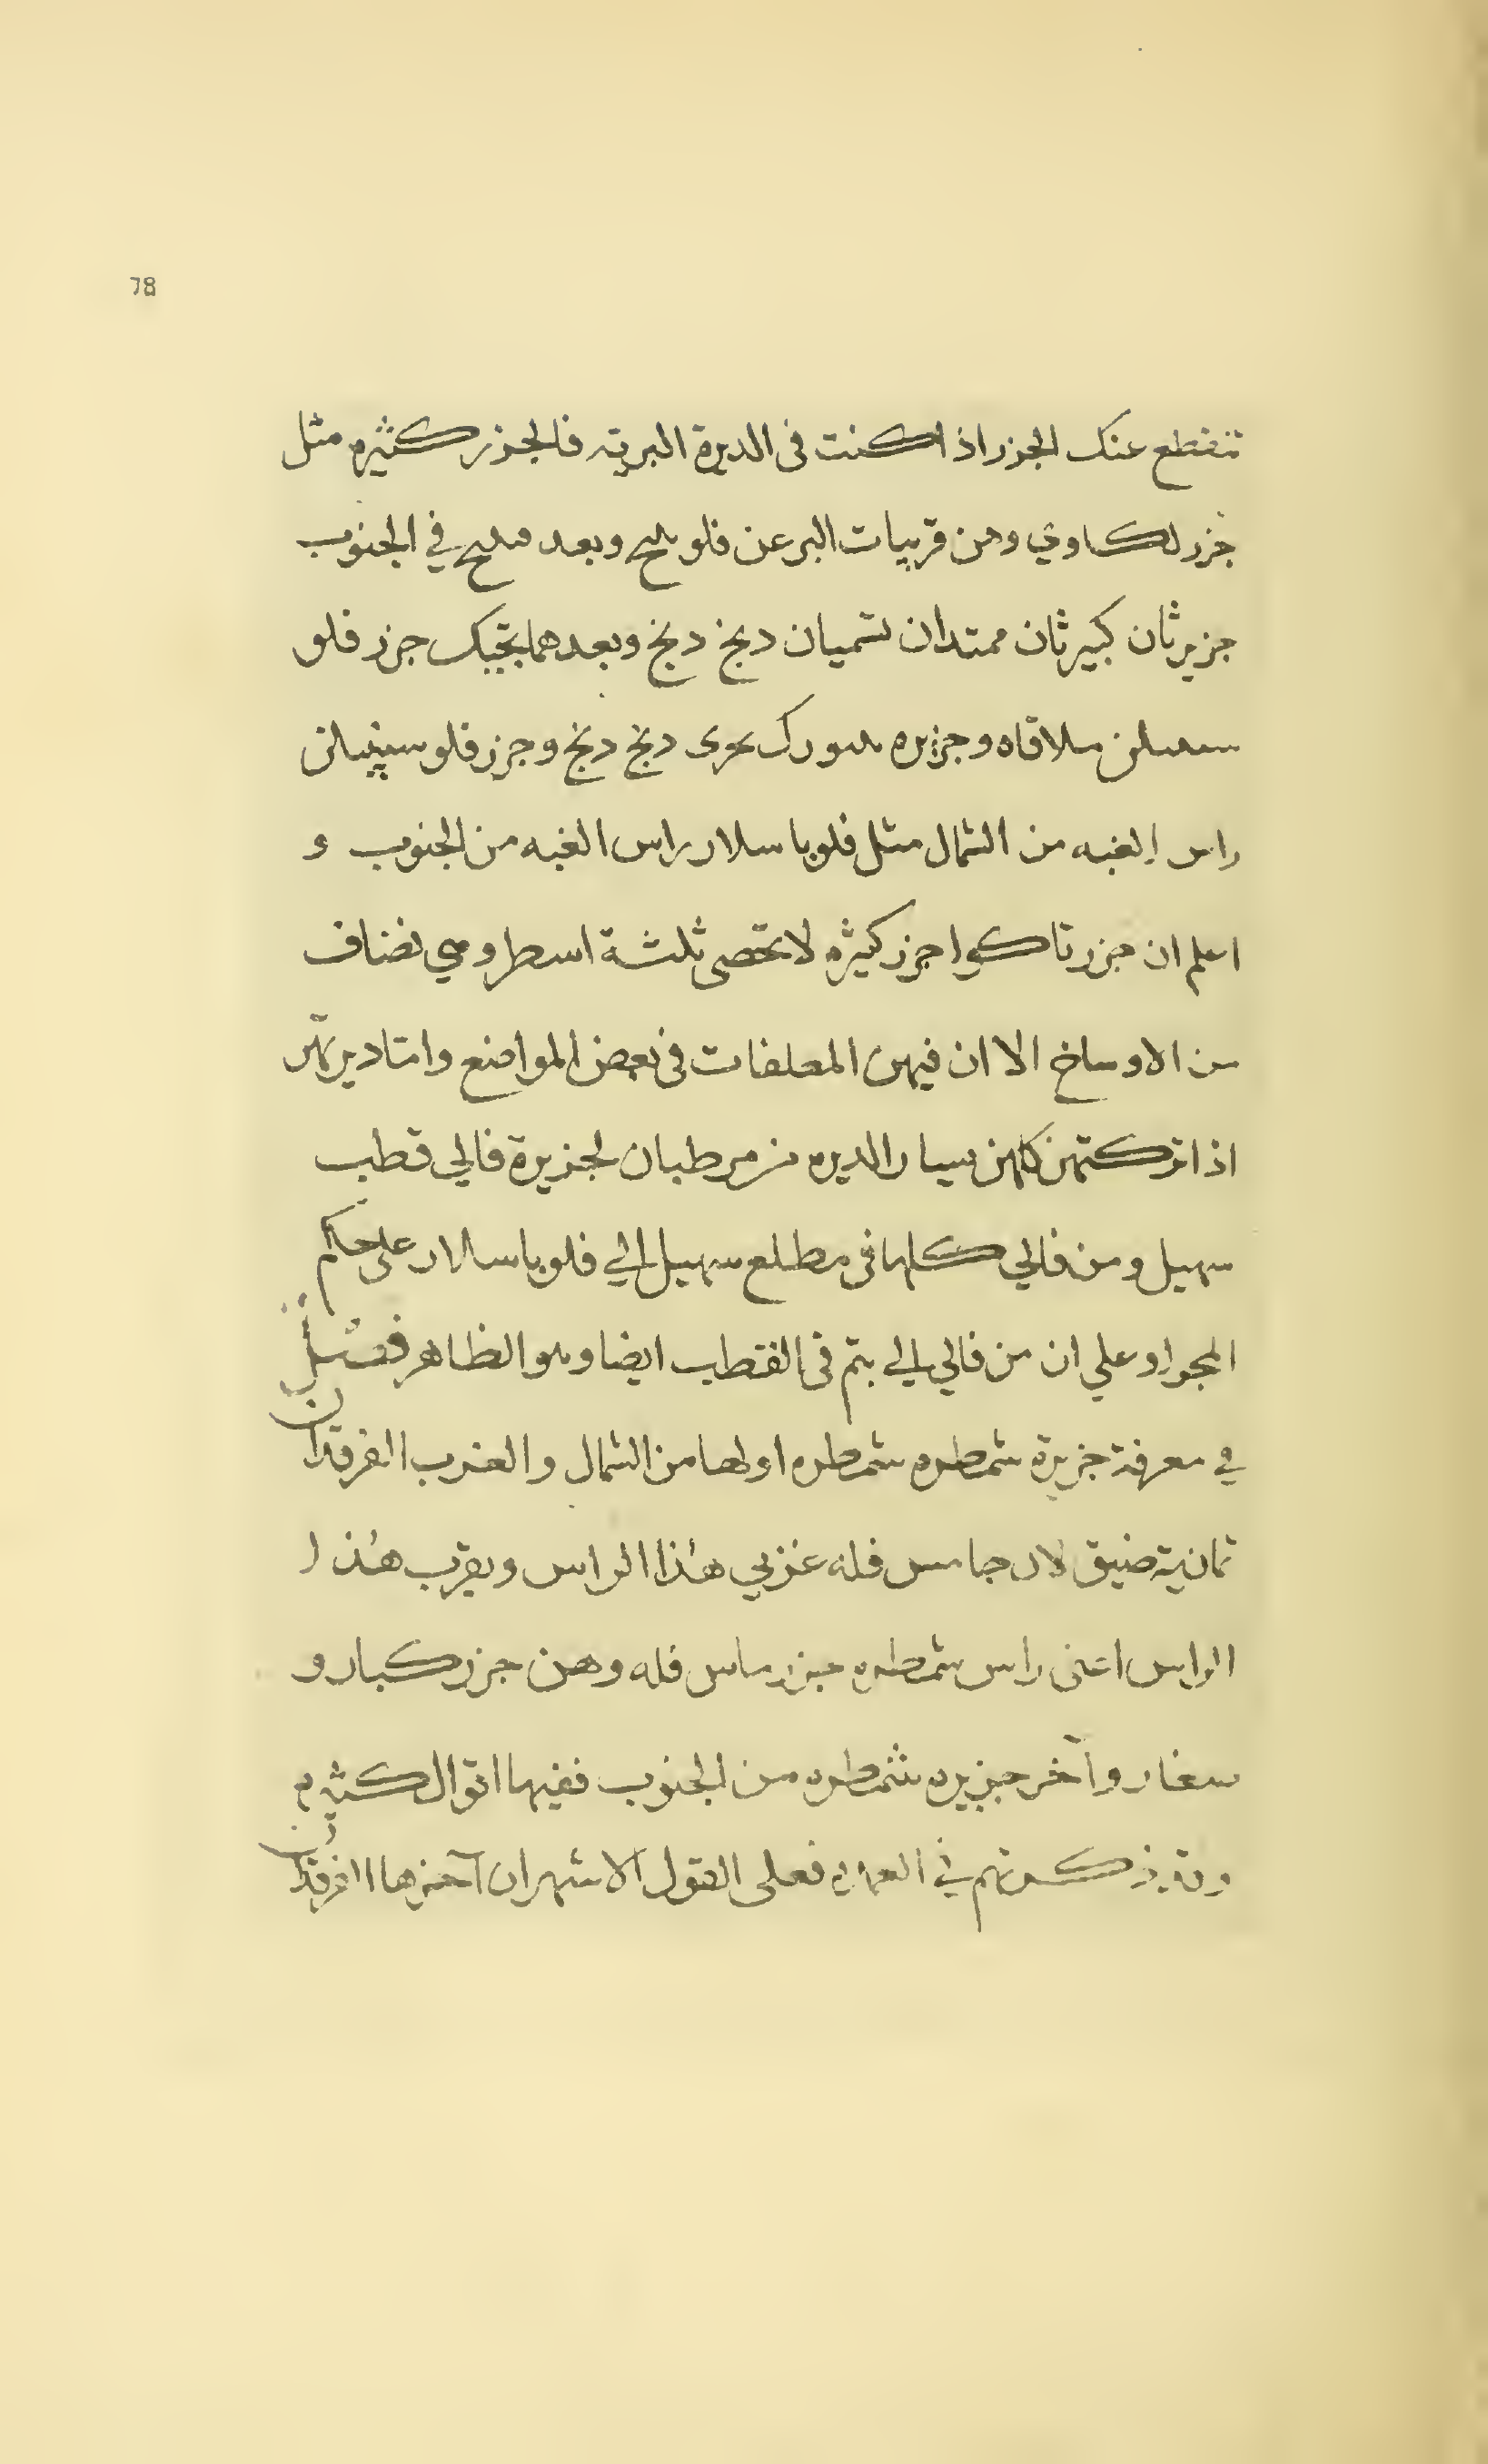 78
تنقطع عنك الجزر اذا كنت فى الديرة البرية فالجزر كثيره مثل
جزر لكاوي وهن قريبات البر عن فلو بلج وبعد فلج في الجنوب
جزيرثان كبيرثان ممتدان تسميان دبخ دبخ وبعدهما يجيك جرز فلو
ملاقاه وجزيره دبخ دبخ وجرز فلو سنبيلن
راس الغبه من الشمال مثل فلو با سلار راس الغبه من الجنوب و
اعلم ان جزر تاكوا جزر كثيره لا تحصى ثلثة اسطر وهي نضاف
من الاوساخ الا ان فيهن المعلفات فى بعض المواضع وامتا ديرتهن
اذا تركتهن كلهن يسار الديره من مرطبان لجزيرة فالي قطب
سهيل ومن فالي كلها فى مطلع سهيل الي فلو با سالار على حكم
المجرا وعلي ان من فالي الي بتم فى القطب ايضا وهو الظاهر فصل
في معرفة جزيرة شمطره شمطره اولها من الشمال والغرب الفرقدان
ثمانية ضيق لان جامس فله غربي هذا الراس وبقرب هذا
الراس اعنى راس شمطره جزر ماس فله وهن جزر كبار و
سغار وآخر جزيره شمطره من الجنوب ففيها اقوال كثيره
وقد ذكرتهم في فعلى القول الاشهر ان آخرها الفرقدان